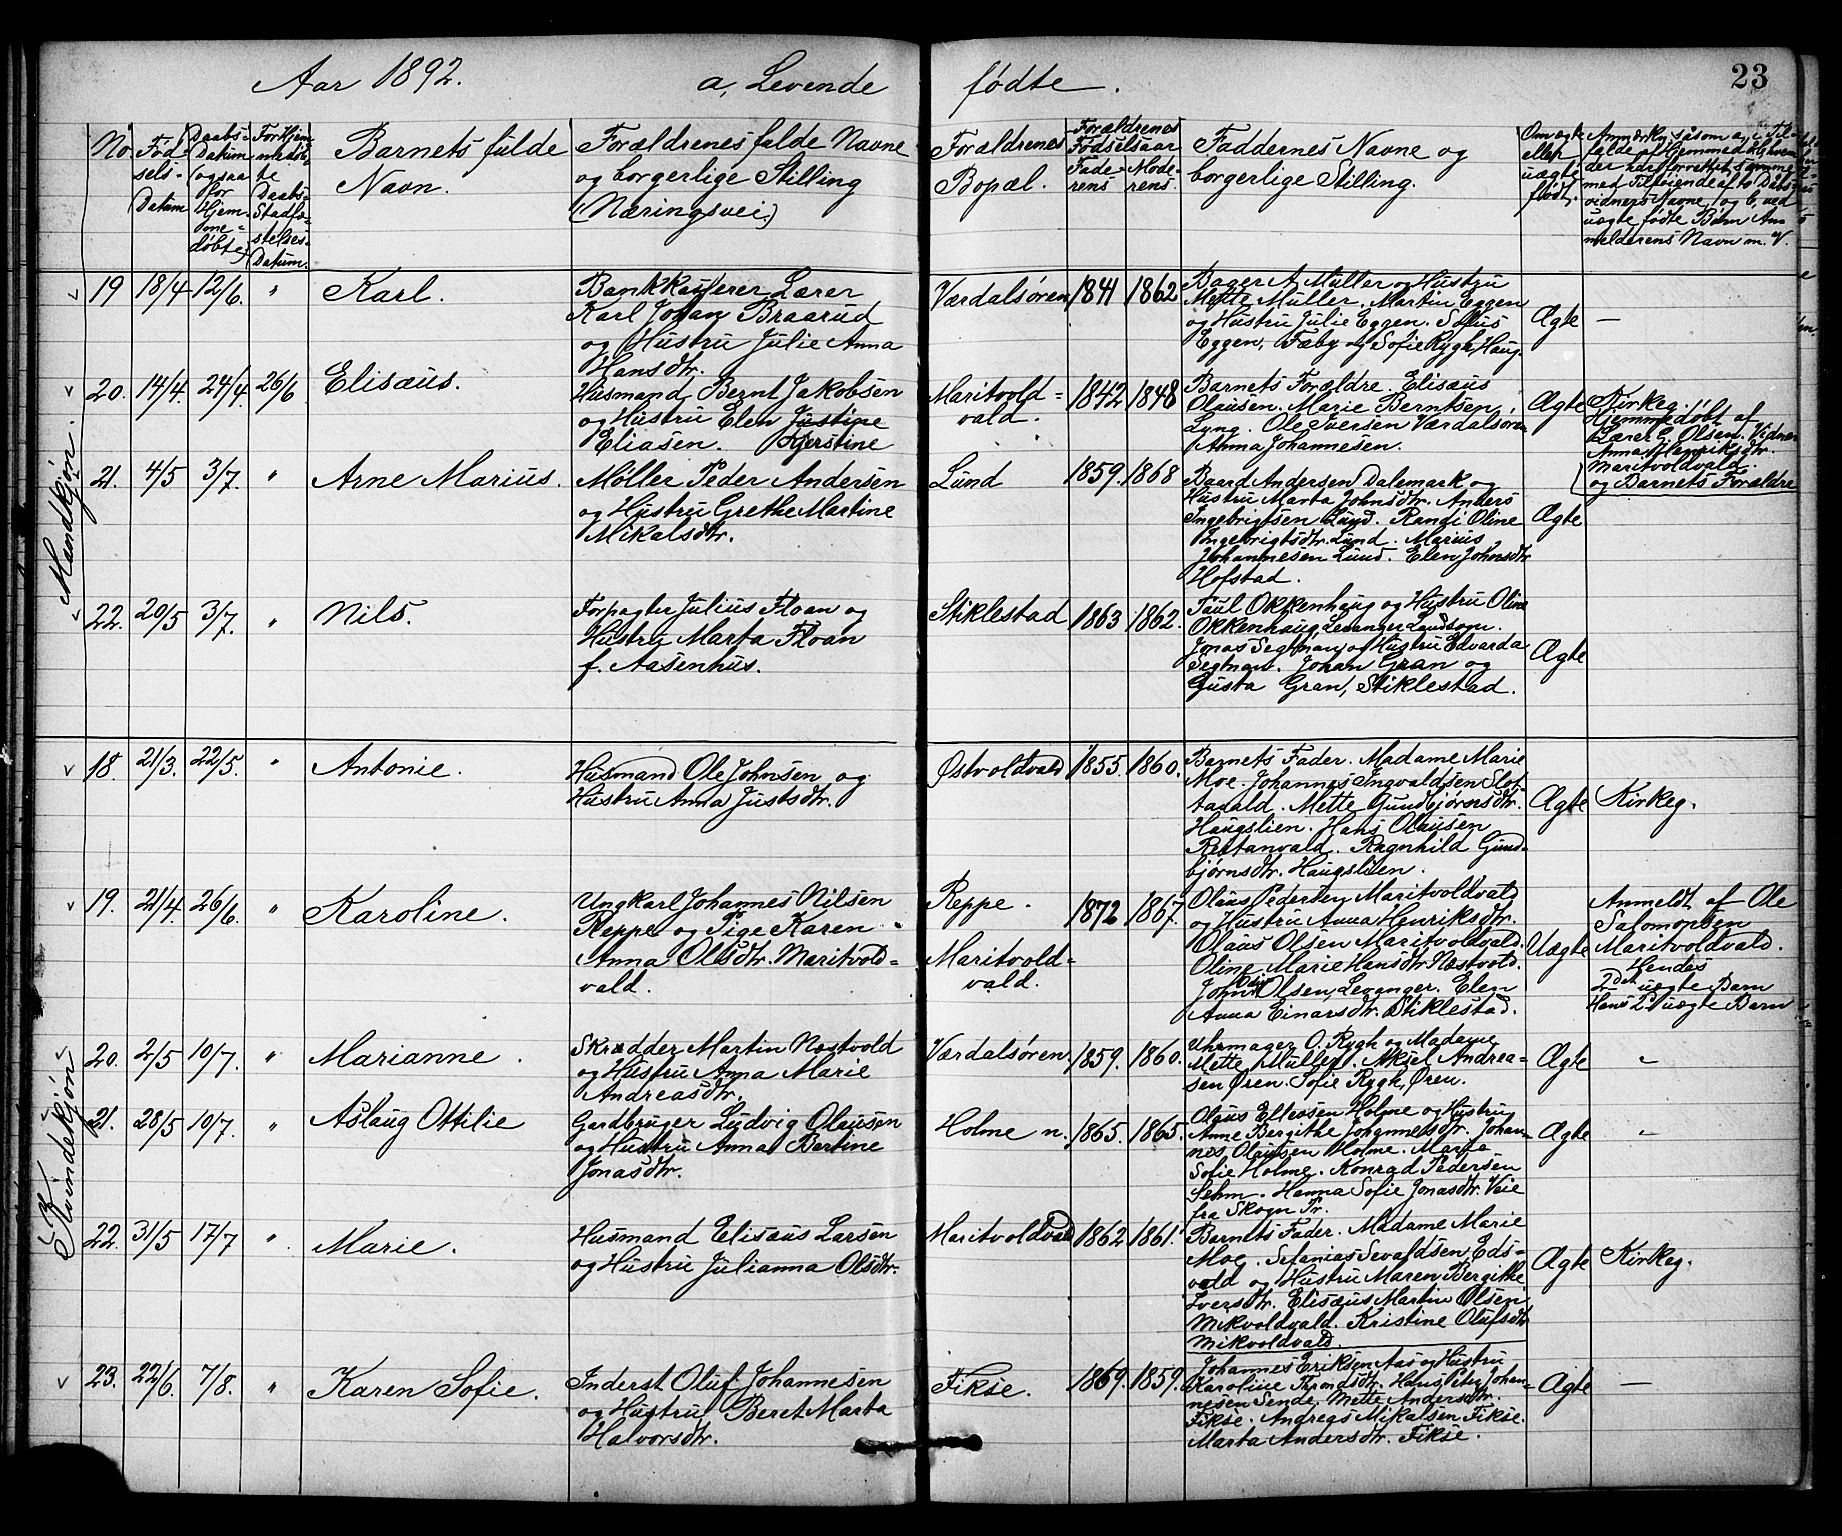 Aar 1892. a, Levende fødte. 23
No
Fødselsdatum
Daabsdatum (ogsaa for Hjemmedøbte)
For Hjemmedøbte Daabsstadfæstelses-Datum.
Barnets fulde Navn.
Forældrenes fulde Navne og borgerlige Stilling (Næringsvei.)
Forældrenes Bopæl.
Forældrenes Fødselsaar Faderens Moderens
Faddernes Navne og borgerlige Stilling.
Om ægte eller uægte født.
Anmærkn. såsom a, i Tilfælde af Hjemmedåb, hvem der har forrettet samme med Tilføiende af to Dåbsvidners Navne, og b, ved uægte fødte Børn Anmelderens Navn m. V.
Mandkjøn.
19 18/4 12/6. " Karl.
Bankkasserer, Lærer
Karl Johan Braarud
og Hustru Julie Anna
Hansdtr.
Værdalsøren 1841 1862
Bager A. Müller og Hustru
Mette Müller. Martin Eggen
og Hustru Julie Eggen. Sofus
Eggen, Fæby og Sofie Rygh, Haug.
Ægte —
20. 14/4. 24/4. 26/6 Elisæus.
Husmand Bernt Jakobsen
og Hustru Elen Justine
Eliasen. Kjerstine
Maritvold=
vald. 1842 1848
Barnets Forældre. Elisæus
Olausen. Marie Berntsen,
Lyng. Ole Iversen Værdalsøren
Anna Johannesen.
Ægte
Kirkeg.
Hjemmedøbt af
Lærer G. Olsen. Vidner
Anna Henriksdtr.
Maritvoldvald.
og Barnets Forældre
21. 4/5 3/7. " Arne Marius.
Møller Peder Andersen
og Hustru Grethe Martine
Mikalsdtr.
Lund 1859. 1868
Baard Andersen Dalemark og
Hustru Marta Johnsdtr. Anders
Ingebrigtsen Lund. Randi Oline
Ingebrigtsdtr. Lund. Marius
Johannesen Lund. Elen Johnsdtr
Hofstad.
Ægte
22. 20/5 3/7. " Nils.
Forpagter Julius Floan og
Hustru Marta Floan
f. Aasenhus.
Stiklestad 1863 1862.
Paul Okkenhaug og Hustru Oline
Okkenhaug, Levanger Landsogn.
Jonas Segtnan og Hustru Edvarda
Segtnan. Johan Gran og
Gusta Gran, Stiklestad.
Ægte
Kvindekjøn
18. 21/3. 22/5. " Antonie.
Husmand Ole Johnsen og
Hustru Anna Justsdtr.
Østvoldvald 1855. 1860.
Barnets Fader. Madame Marie
Moe. Johannes Ingvaldsen Slot-
tavald. Mette Gundbjørnsdtr.
Haugslien. Hans Olausen
Restanvald. Ragnhild Gund-
bjørnsdtr. Haugslien.
Ægte Kirkeg.
19. 21/4. 26/6. " Karoline.
Ungkarl Johannes Nilsen
Reppe og Pige Karen
Anna Olsdtr. Maritvold=
vald.
Reppe.
Maritvold=
vald.
1872 1867.
Olaus Pedersen Maritvoldvald
og Hustru Anna Henriksdtr.
Olaus Olsen Maritvoldvald.
Oline Marie Hansdtr Næstvold.
John Olsen, Levanger. Elen
Anna Einarsdtr. Stiklestad.
Uægte
Anmeldt af Ole
Salomonsen
Maritvoldvald.
Hendes
2det uægte Barn
Hans 1ste uægte Barn
20. 2/5 10/7. " Marianne.
Skrædder Martin Næstvold
og Hustru Anna Marie
Andreasdtr.
Værdalsøren. 1859. 1860.
Uhrmager O. Rygh og Madame
Mette Müller. Aksel Andrea-
sen Øren. Sofie Rygh, Øren.
Ægte "
21. 28/5 10/7. " Aslaug Ottilie
Gardbruger Ludvig Olausen
og Hustru Anna Bertine
Jonasdtr.
Holme n. 1865. 1865.
Olaus Elleosen Holme og Hustru
Anne Bergithe Johannesdtr. Johan-
nes Olausen Holme. Marta
Sofie Holme. Konrad Pedersen
Sehm. Hanna Sofie Jonasdtr. Veie
fra Skogn Pr.
Ægte "
22. 31/5 17/7 " Marie.
Husmand Elisæus Larsen
og Hustru Julianna Olsdtr.
Maritvoldvald 1862 1861.
Barnets Fader. Madame Marie
Moe. Sefanias Sevaldsen Eds-
vald og Hustru Maren Bergithe
Iversdtr. Elisæus Martin Olsen
Mikvoldvald. Kristine Olufsdtr
Mikvoldvald.
Ægte Kirkeg.
23. 22/6. 7/8. " Karen Sofie.
Inderst Oluf Johannesen
og Hustru Beret Marta
Halvorsdtr.
Fikse. 1869. 1859.
Johannes Eriksen Aas og Hustru
Karoline Trondsdtr. Hans Peter Johan-
nesen Sende, Mette Andersdtr.
Fikse. Andreas Mikalsen Fikse.
Marta Andersdtr. Fikse.
Ægte —